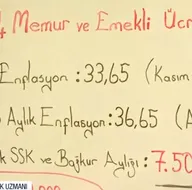 4 Memur ve Emekli Ücr
Enflasyon : 33,65 (Kasım
Aylık Enflasyon : 36,65 (A
k SSK ve Bağkur Aylığı : 7.50
K UZMANI